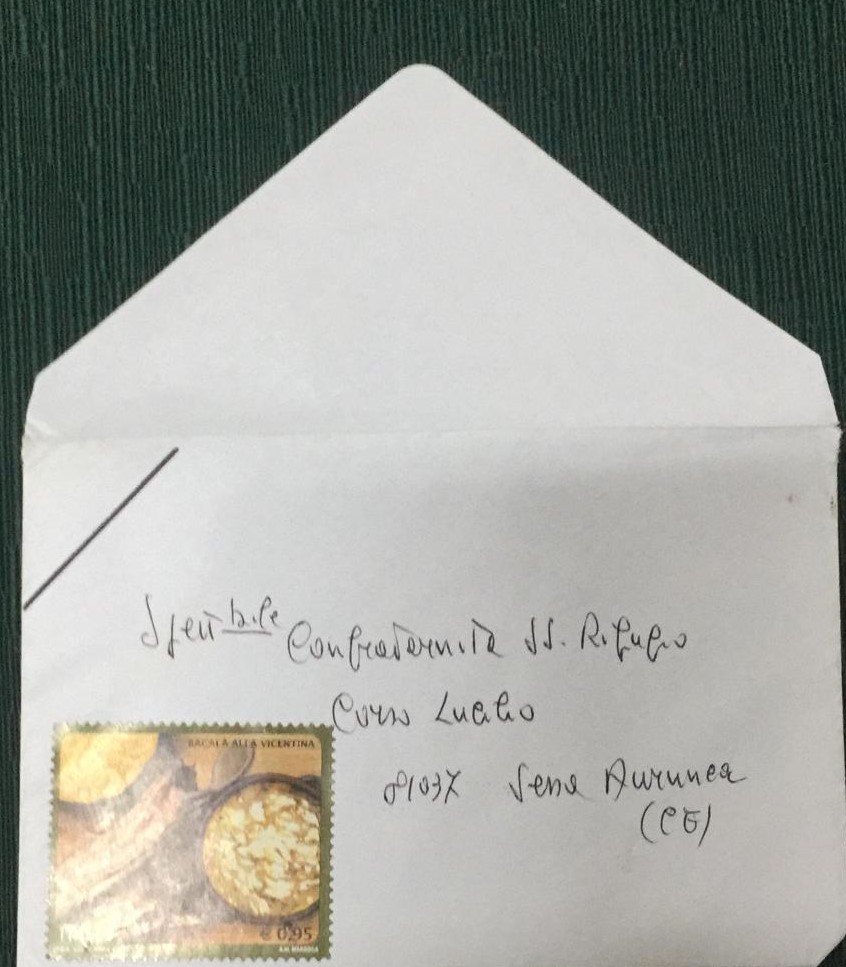 Spett.bile Confraternità SS. Rifugio
Corso Lucilio
81037 Sessa Aurunca
(CE)
BACALÀ ALLA VICENTINA
€ 0,95